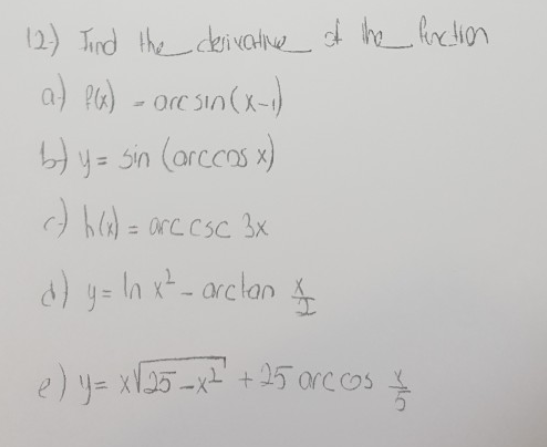 12.) Find the derivative of the function
a) f(x) = arcsin(x-1)
b) y = sin (arccos x)
c) h(x) = arc csc 3x
d) y = ln x² - arctan x/2
e) y = x√25-x² + 25 arccos x/5